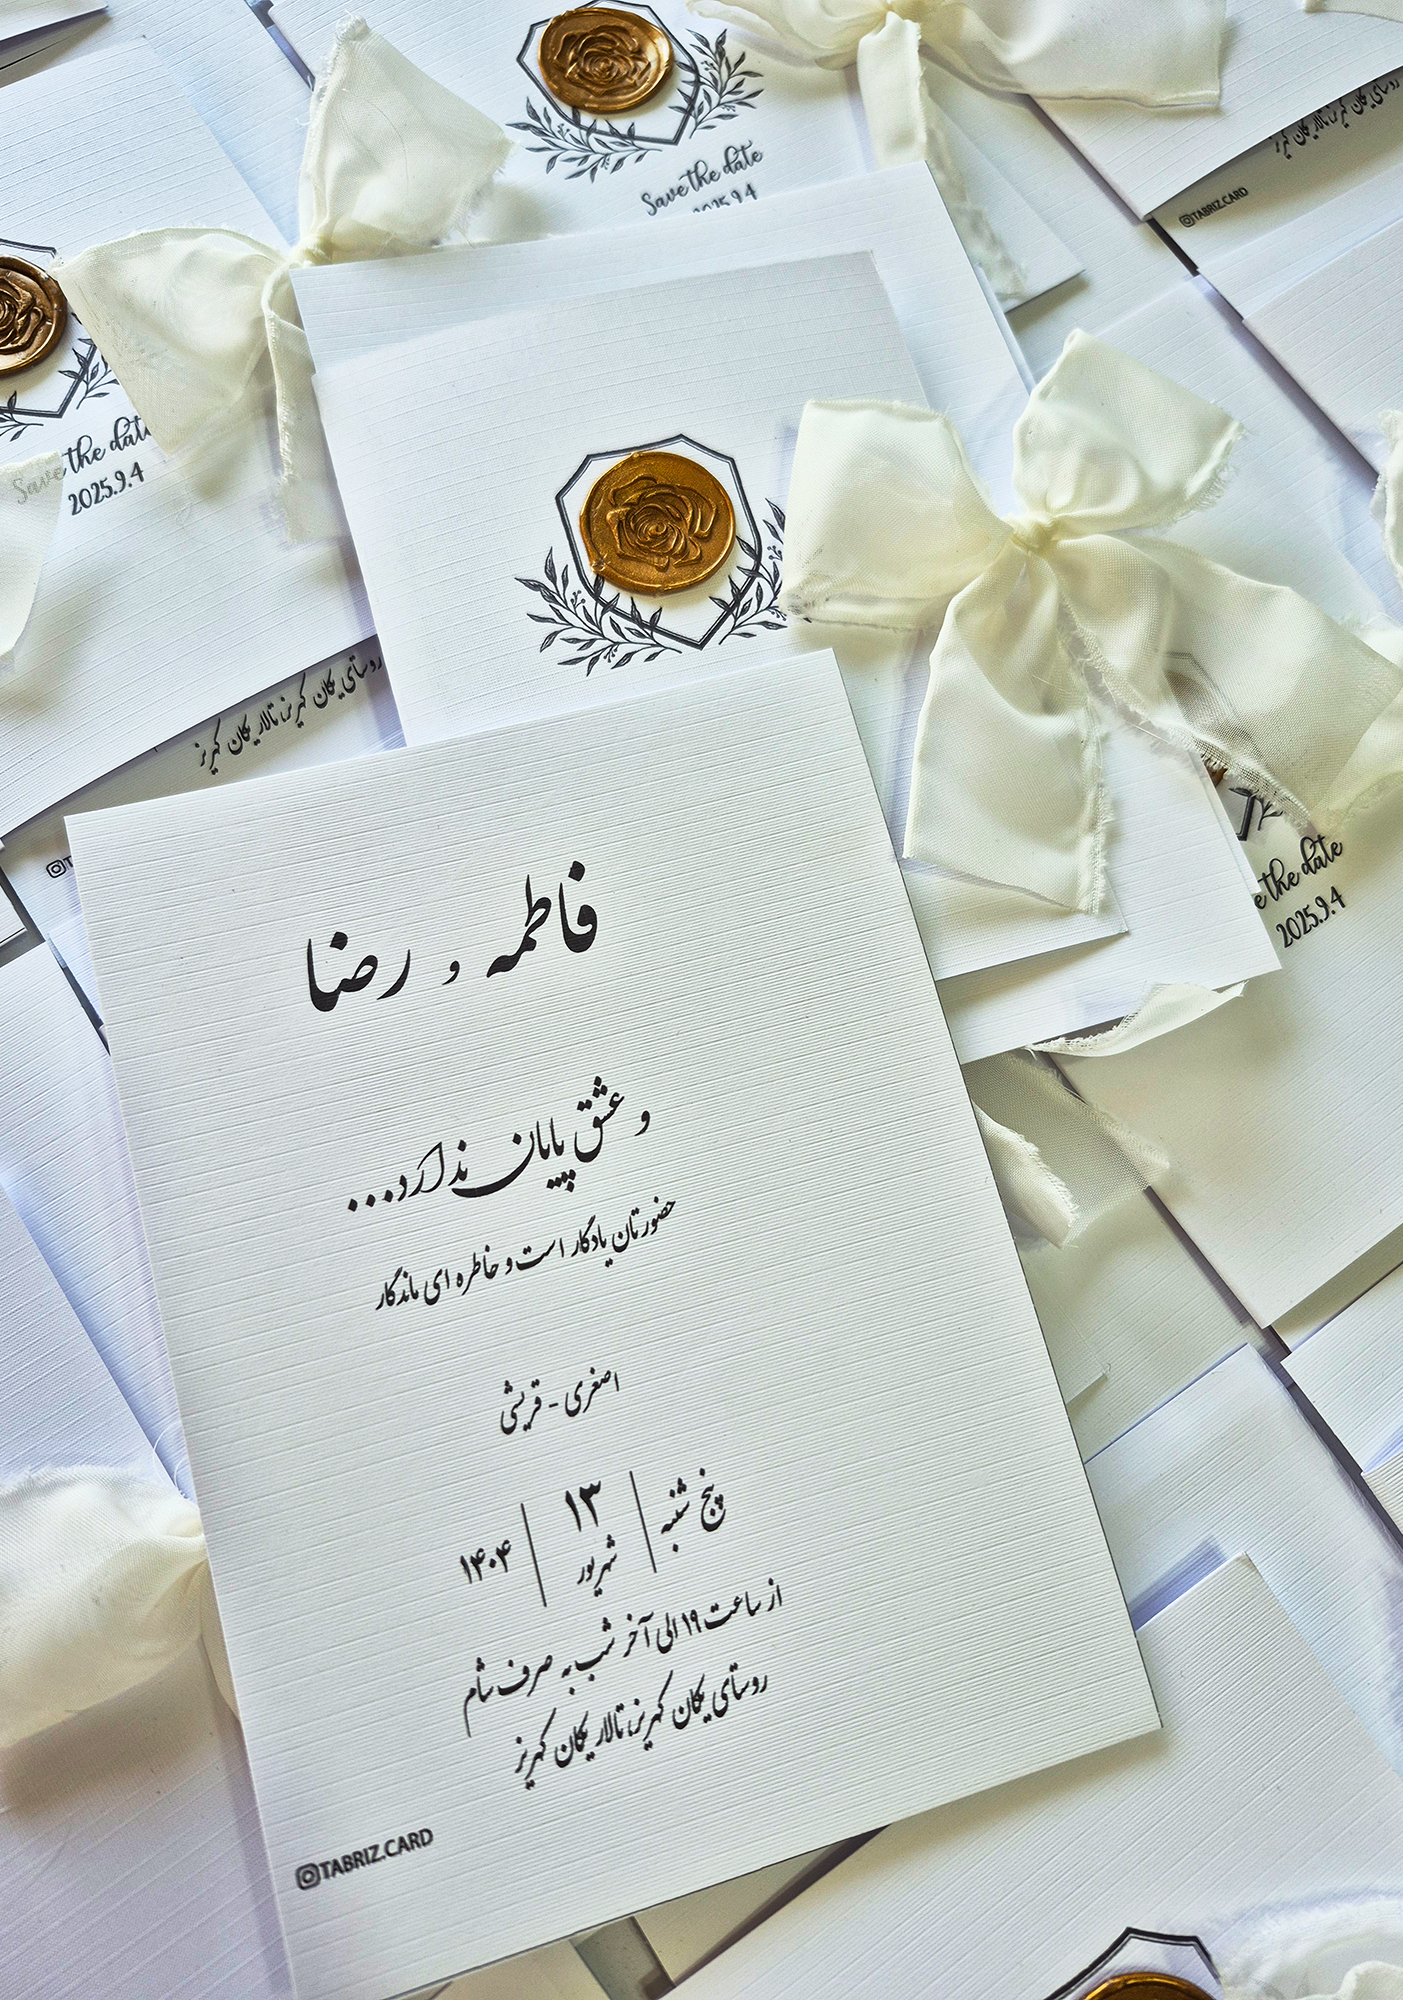 Save the date
2025.9.4
روستای یکان کهریز، تالار یکان کهریز
TABRIZ.CARD
Save the date
2025.9.4
روستای یکان کهریز، تالار یکان کهریز
the date
2025.9.4
فاطمه و رضا
و عشق پایان ندارد...
حضورتان یادگار است و خاطره ای ماندگار
اصغری - قریشی
پنج شنبه | ۱۳ شهریور | ۱۴۰۴
از ساعت ۱۹ الی آخر شب به صرف شام
روستای یکان کهریز، تالار یکان کهریز
TABRIZ.CARD